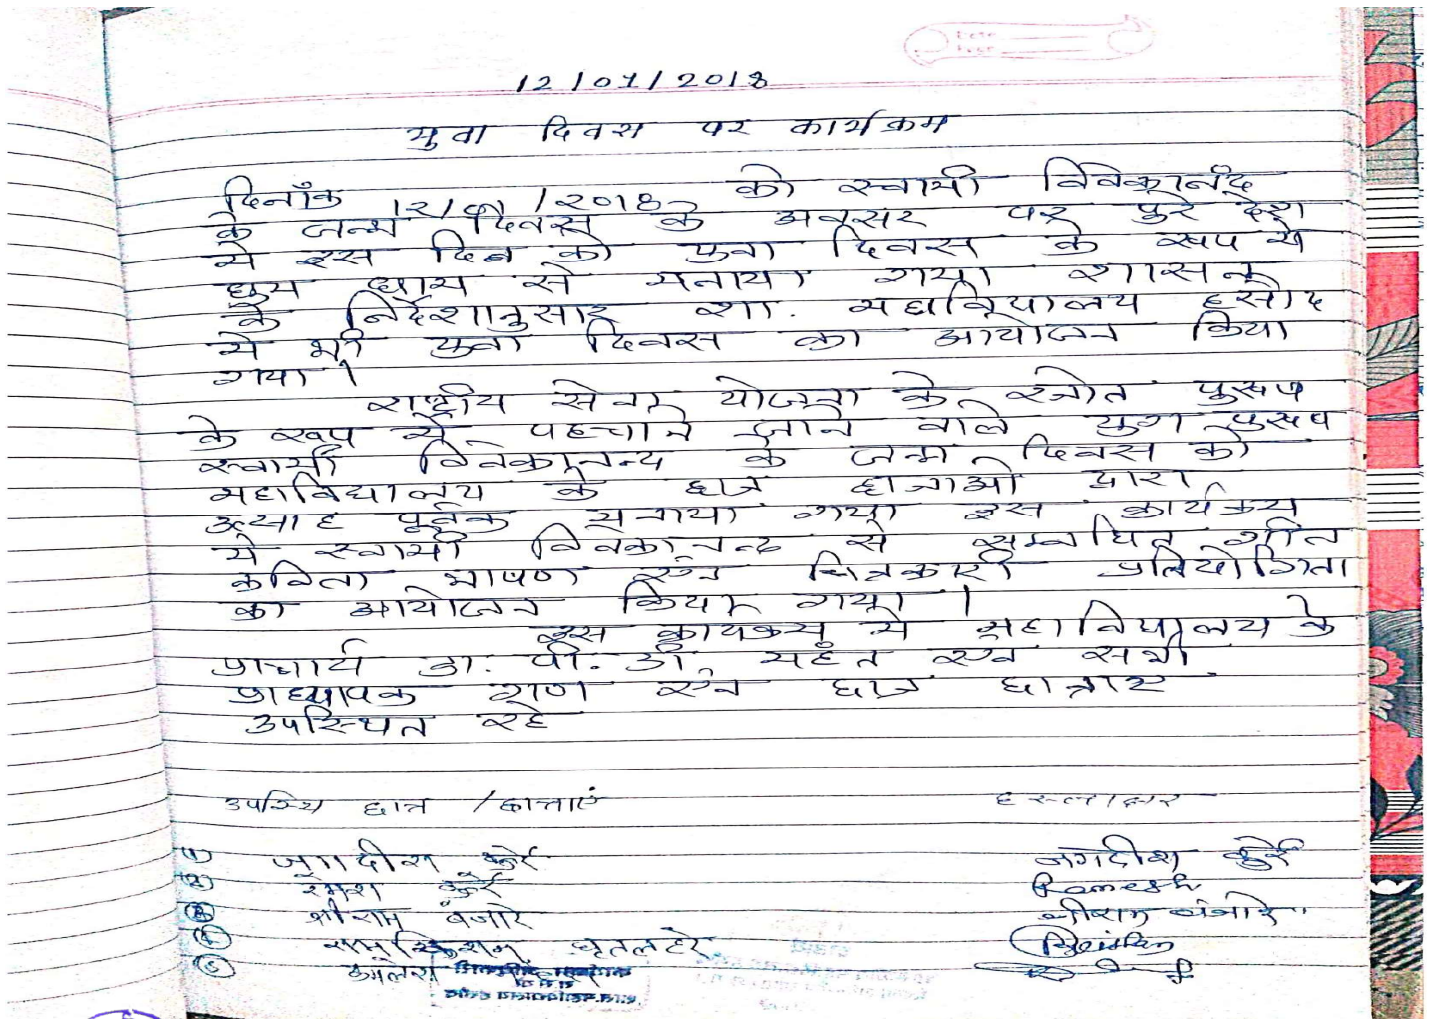 Date
Page
12/01/2018
युवा दिवस पर कार्यक्रम
दिनाँक 12/01/2018 को स्वामी विवेकानंद
के जन्म दिवस के अवसर पर पुरे देश
मे इस दिन को युवा दिवस के रूप मे
धुम धाम से मनाया गया शासन
के निर्देशानुसार शा. महाविद्यालय हसौद
मे भी युवा दिवस का आयोजन किया
गया।
राष्ट्रीय सेवा योजना के स्त्रोत पुरूष
के रूप मे पहचाने जाने वाले युग पुरूष
स्वामी विवेकानन्द के जन्म दिवस को
महाविद्यालय के छात्र छात्राओ द्वारा
उत्साह पूर्वक मनाया गया इस कार्यक्रम
मे स्वामी विवेकानन्द से सम्बधित गीत
कविता भाषण एंव चित्रकारी प्रतियोगिता
का आयोजन किया गया।
इस कार्यक्रम मे महाविद्यालय के
प्राचार्य डा. पी. डी. महंत एंव सभी
प्राध्यापक गण एंव छात्र छात्राए
उपस्थित रहे
उपस्थि छात्र / छात्राएं हस्ताक्षर
(1) जगदीश कुर्रे जगदीश कुर्रे
(2) रमेश कुर्रे Ramesh
(3) श्रीराम बंजारे श्रीराम बंजारे
(4) घृतलहरे
(5) कमलेश